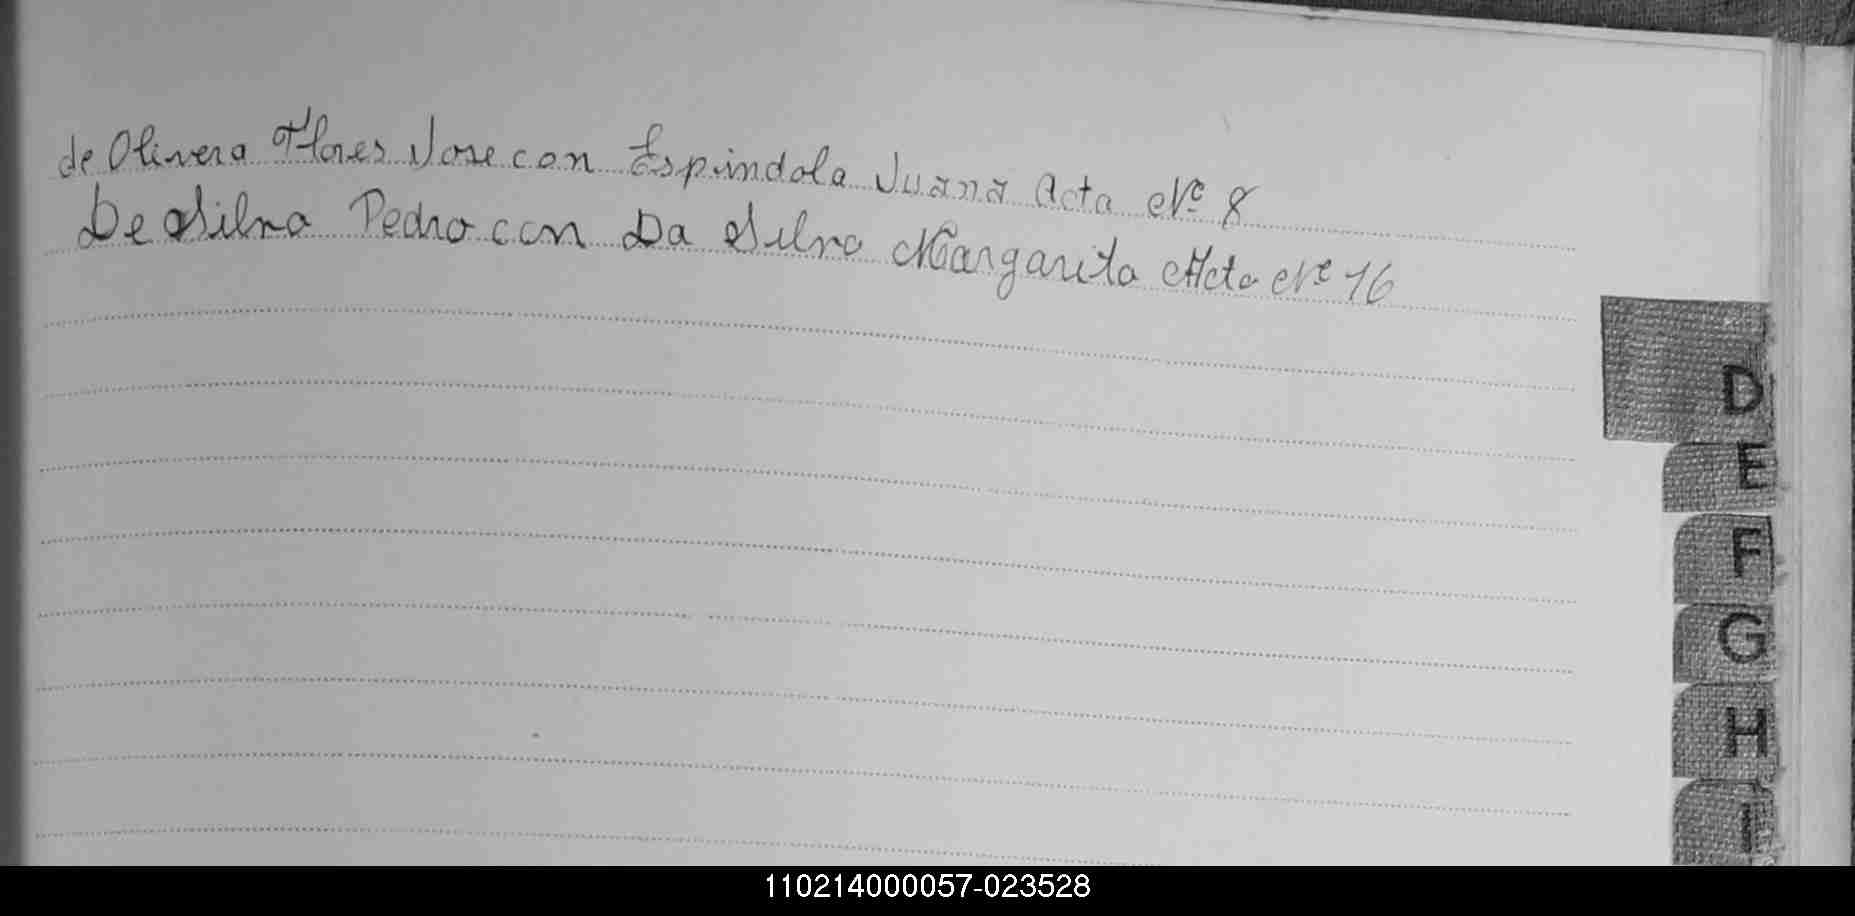 de Olivera Flores Jose con Espindola Juana Acta Nº 8
De Silva Pedro con Da Silva Margarita Acta Nº 16
D
E
F
G
H
I
110214000057-023528